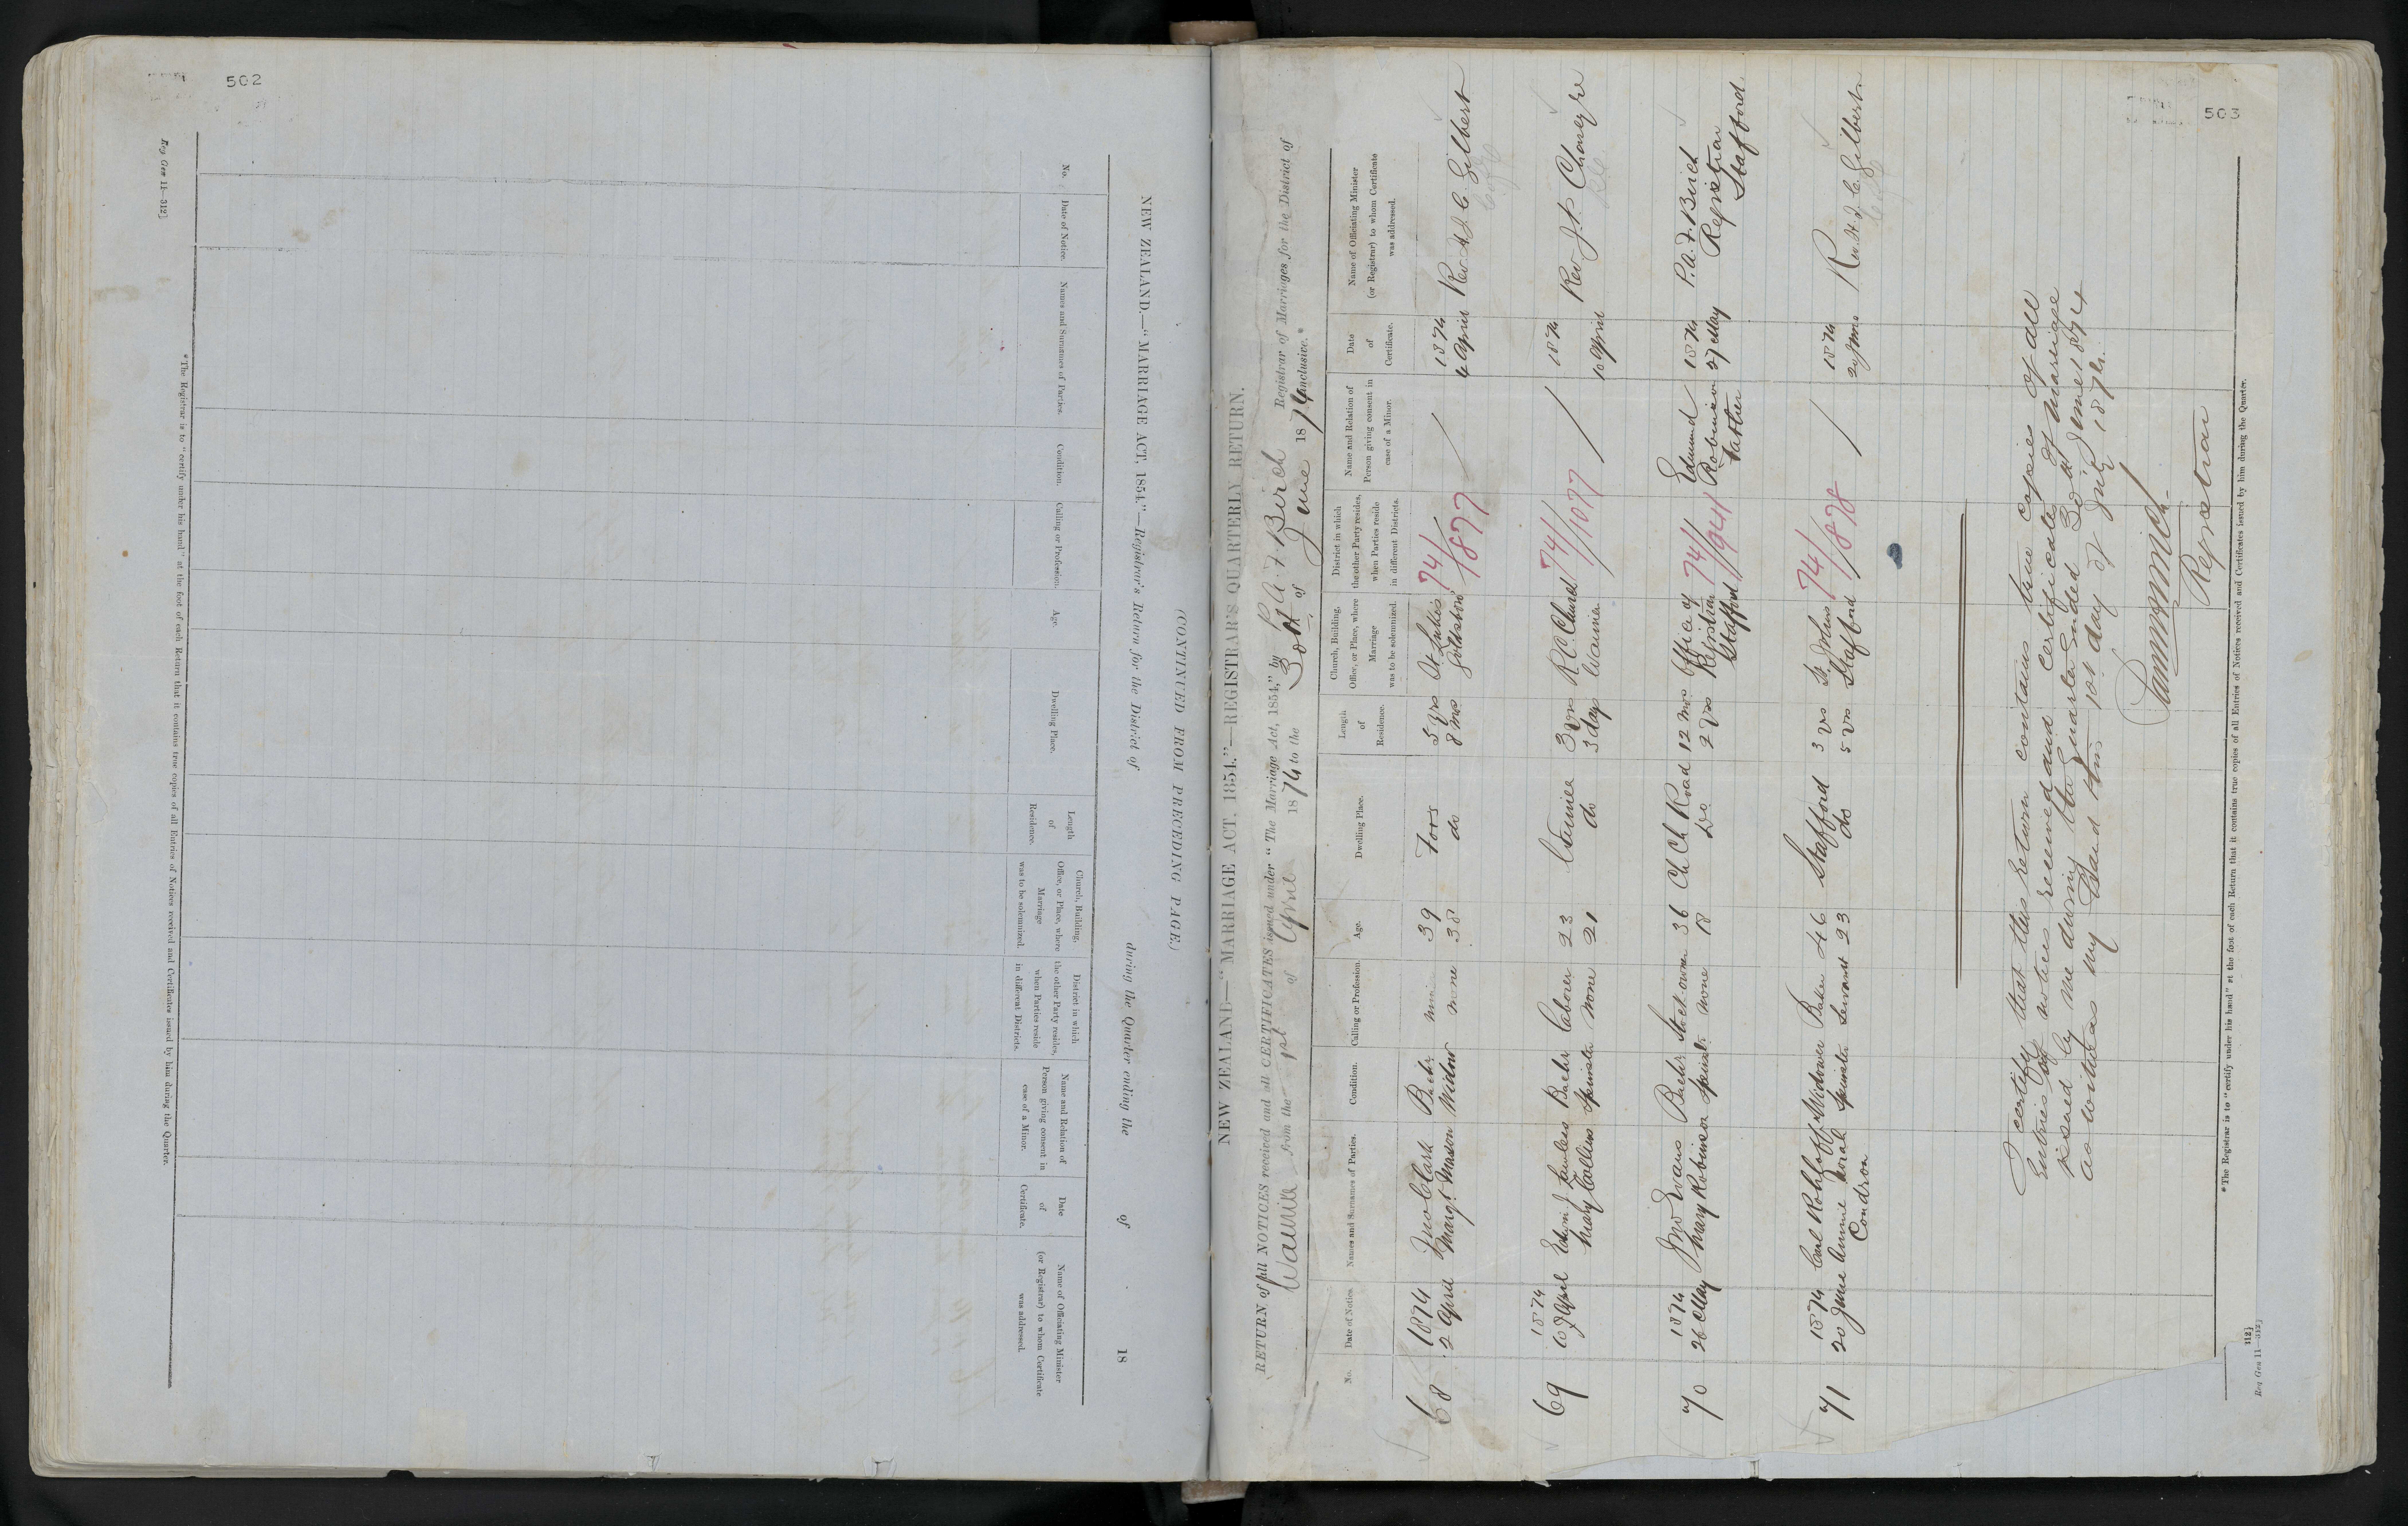 502
Reg Gen 11—312]
NEW ZEALAND.—"MARRIAGE ACT, 1854."—Registrar's Return for the District of during the Quarter ending the of 18
(CONTINUED FROM PRECEDING PAGE.)
No.
Date of Notice.
Names and Surnames of Parties.
Condition.
Calling or Profession.
Age.
Dwelling Place.
Length
of
Residence.
Church, Building,
Office, or Place, where
Marriage
was to be solemnized.
District in which
the other Party resides,
when Parties reside
in different Districts.
Name and Relation of
Person giving consent in
case of a Minor.
Date
of
Certificate.
Name of Officiating Minister
(or Registrar) to whom Certificate
was addressed.
*The Registrar is to "certify under his hand" at the foot of each Return that it contains true copies of all Entries of Notices received and Certificates issued by him during the Quarter.
503
NEW ZEALAND—"MARRIAGE ACT, 1854."—REGISTRAR'S QUARTERLY RETURN.
RETURN of all NOTICES received and all CERTIFICATES issued under "The Marriage Act, 1854," by P. A. F. Birch Registrar of Marriages for the District of
from the 1st of April 1874 to the 30th of June 1874 inclusive.*
No.
Date of Notice.
Names and Surnames of Parties.
Condition.
Calling or Profession.
Age.
Dwelling Place.
Length
of
Residence.
Church, Building,
Office, or Place, where
Marriage
was to be solemnized.
District in which
the other Party resides,
when Parties reside
in different Districts.
Name and Relation of
Person giving consent in
case of a Minor.
Date
of
Certificate.
Name of Officiating Minister
(or Registrar) to whom Certificate
was addressed.
68 1874 Jno Clark Bachr 39 5 yrs 74/ 1874
2 April Margt Mason Widow none 38 do 8 mos Goldsboro 877 4 April Rev H. J. C. Gilbert
69 1874 Lawless Bachr Laborer 23 3 yrs R. C. Church 74/ 1874 Rev J. P.
10 April Mary Collins Spinster none 21 do 3 days 1077 10 April
70 1874 Jno Evans Bachr Stockowner 36 Ch Ch Road 12 mos Office of 74/ Edmund 1874 P. A. F. Birch
26 May Mary Robinson Spinster none 18 Do 2 yrs Registrar 941 Robinson 27 May Registrar
Stafford Father Stafford
71 1874 Carl Rohloff Widower Baker 46 Stafford 3 yrs St. Johns 74/ 1874 Rev. H. J. C. Gilbert
20 June Annie Norah Spinster Servant 23 do 5 yrs Stafford 878 June
Condron
I certify that this return contains true copies of all
Entries of notices received and certificates of marriage
issued by me during the Quarter Ended 30th June 1874
as witness my hand this 1st day of July 1874.
Registrar
*The Registrar is to "certify under his hand" at the foot of each Return that it contains true copies of all Entries of Notices received and Certificates issued by him during the Quarter.
112]
Reg Gen 11—312]